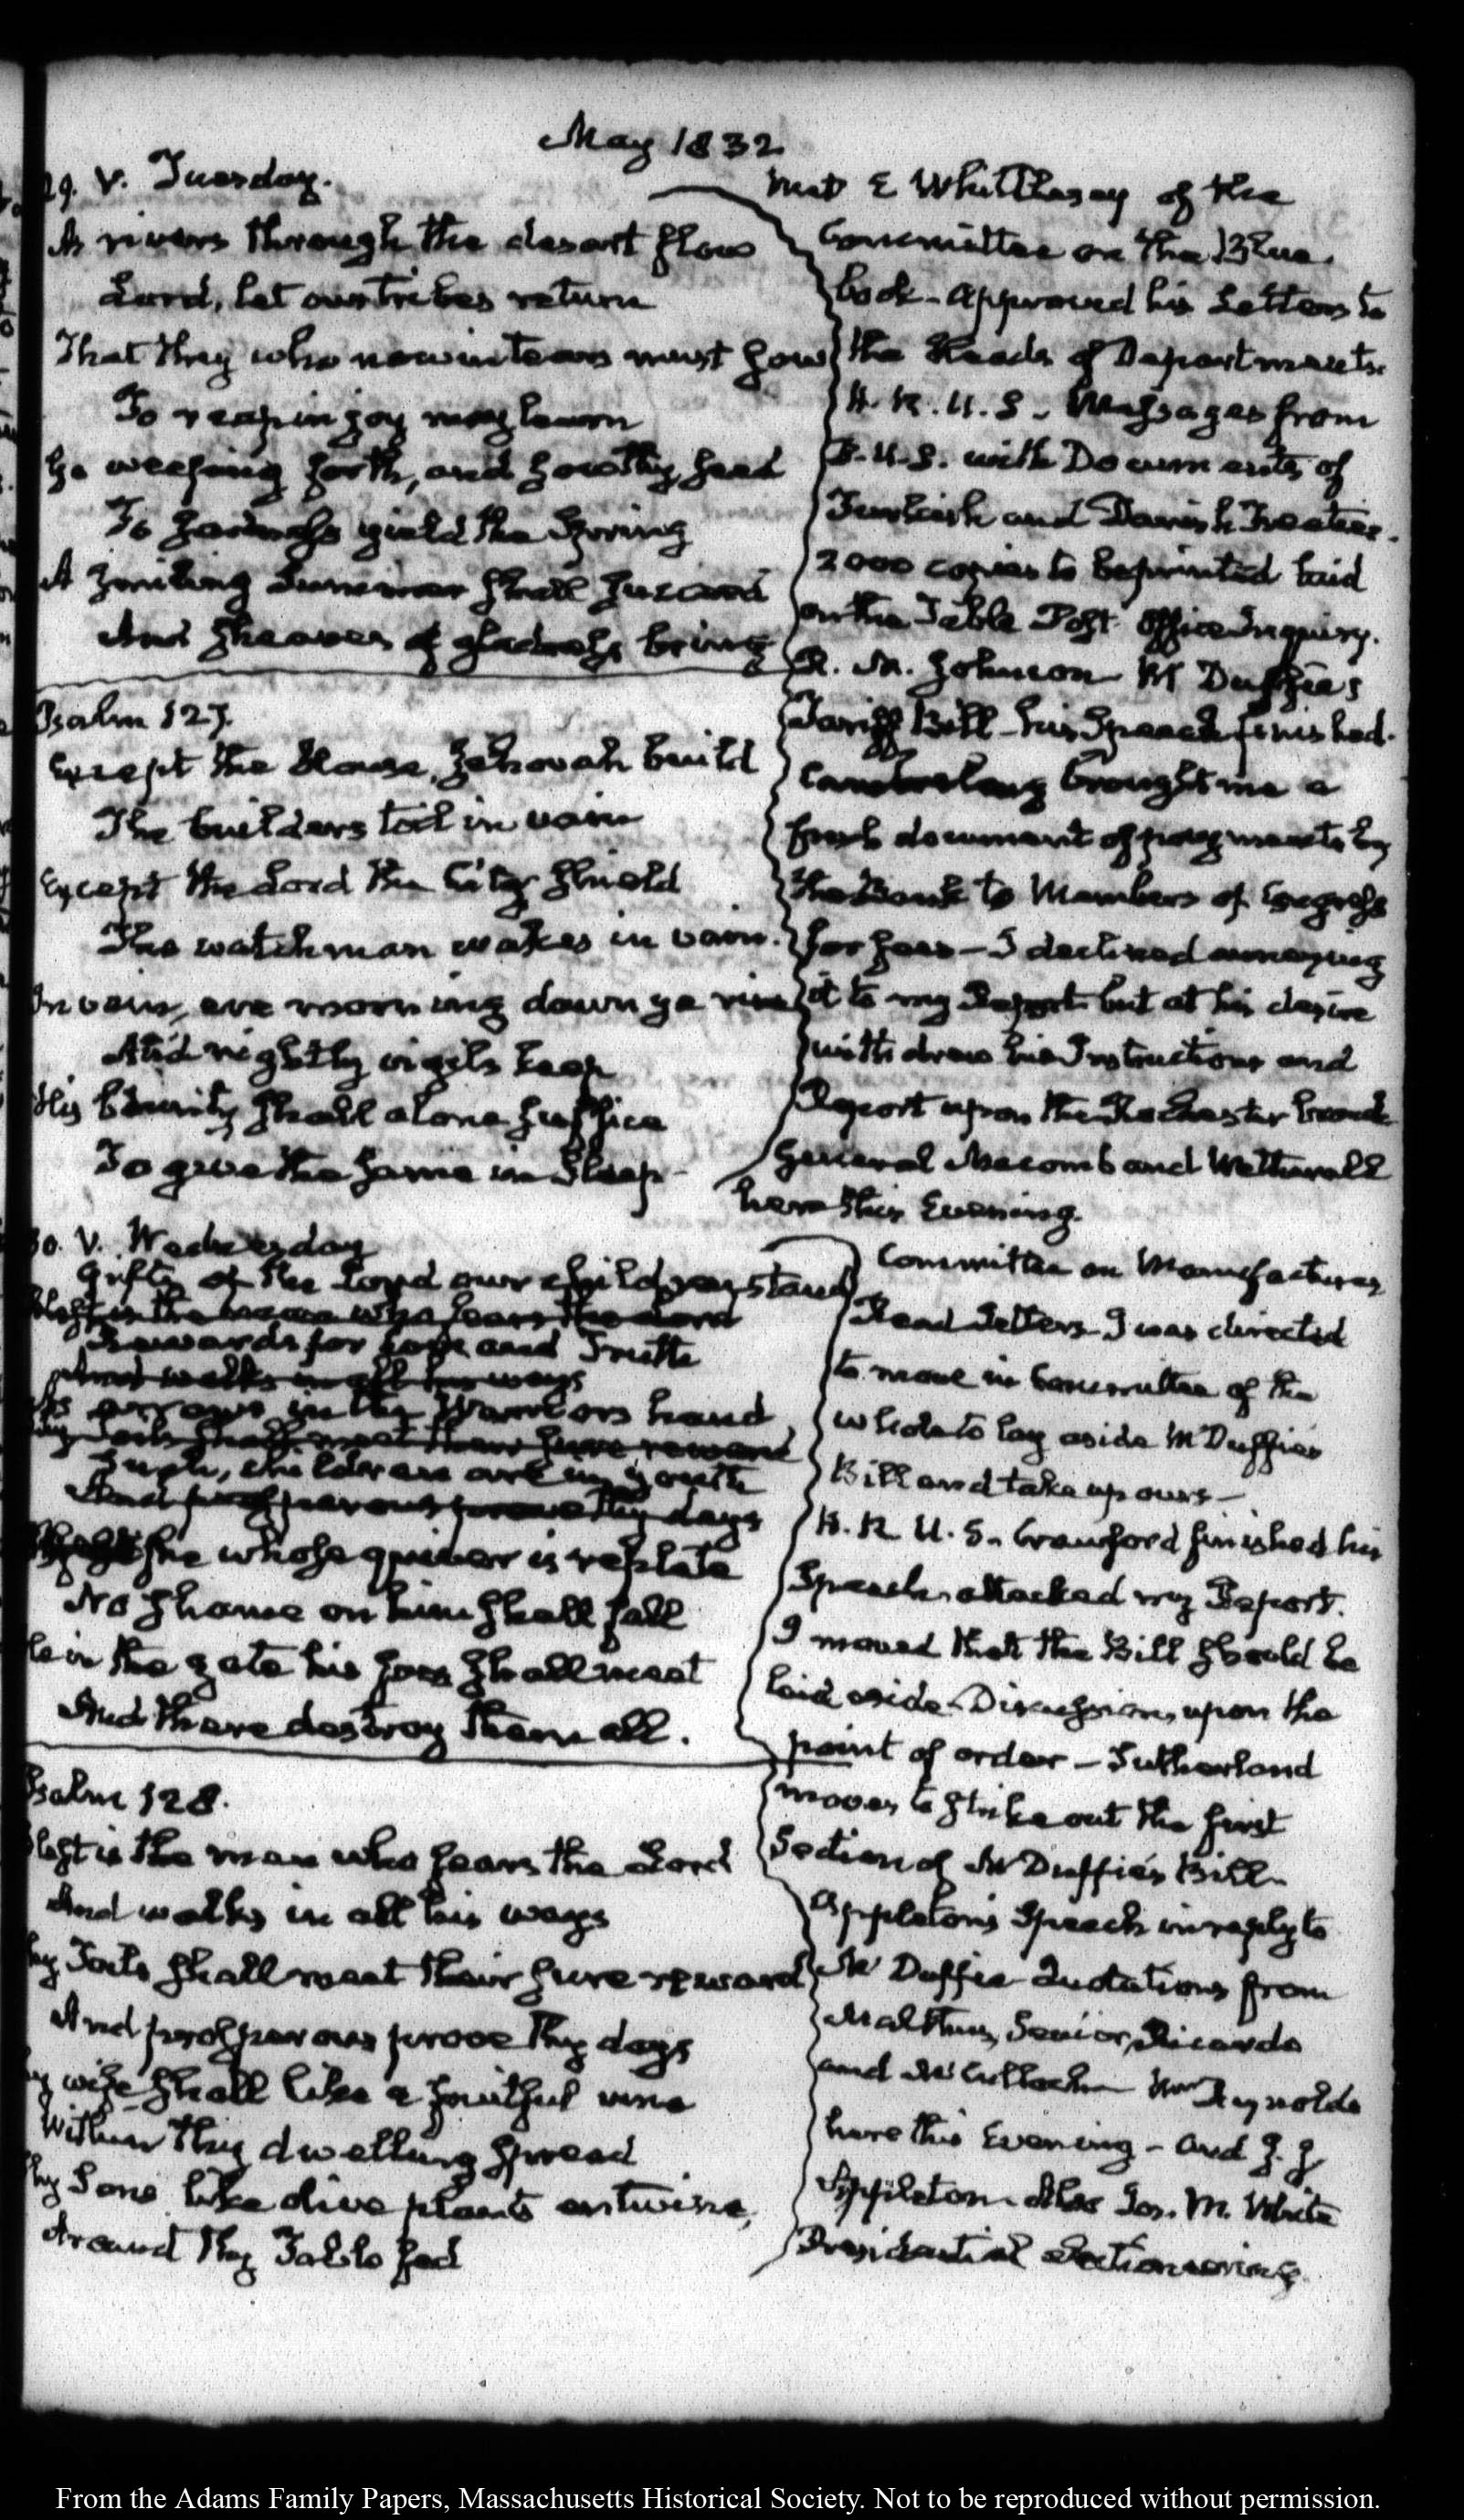 May 1832
29. V. Tuesday.
As rivers through the desart flow
Lord, let our tribes return
That they who now in tears must sow
To reap in joy may learn
Go weeping forth, and sow thy seed
To sadness yield the Spring
A smiling Summer shall succeed
And sheaves of gladness bring
Psalm 127.
Except the House, Jehovah build
The builders toil in vain
Except the Lord the City shield
The watchman wakes in vain.
In vain, ere morning dawn ye rise
And nightly vigils keep
His bounty shall alone suffice
To give the same in Sleep—
30. V. Wednesday
Gifts of the Lord our children stand
Blest is the man who fears the Lord
Rewards for love and Truth
And walks in all his ways
As arrows in the Warriors hand
Thy Toils shall meet their sure reward
Such, children are in youth
And prosperous prove thy days
he whose quiver is replete
No shame on him shall fall
He in the gate his foes shall meet
And there destroy them all.
Psalm 128.
Blest is the man who fears the Lord
And walks in all his ways
Thy Toils shall meet their sure reward
And prosperous prove thy days
Thy wife shall like a fruitful vine
Within thy dwelling spread
Thy Sons like olive plants entwine,
Around thy Table fed
Met E Whittlesey of the
Committee on the Blue
book—approved his Letters to
the Heads of Departments.
H. R. U. S. Messages from
P. U. S. with Documents of
Turkish and Danish Treaties.
2000 copies to be printed laid
on the Table Post Office Inquiry.
R. M. Johnson McDuffie's
Tariff Bill—his Speech finished.
Cambreleng brought me a
fresh document of payments by
the Bank to Members of Congress
for fees—I declined annexing
it to my Report but at his desire
withdrew his Instructions and
Report upon the Rochester
General Macomb and Wetherell
here this Evening.
Committee on Manufactures
Read Letters I was directed
to move in Committee of the
whole to lay aside McDuffies
Bill and take up ours—
H. R. U. S. Crawford finished his
Speech attacked my Report.
I moved that the Bill should be
laid aside—Discussion, upon the
point of order—Sutherland
moves to strike out the first
Section of McDuffie's Bill—
Appleton's Speech in reply to
McDuffie Quotations from
Malthus, Senior, Ricardo
and McCulloch— Reynolds
here this Evening—and J. J.
Appleton. Also Jos. M. White
Presidential Electioneering.
From the Adams Family Papers, Massachusetts Historical Society. Not to be reproduced without permission.